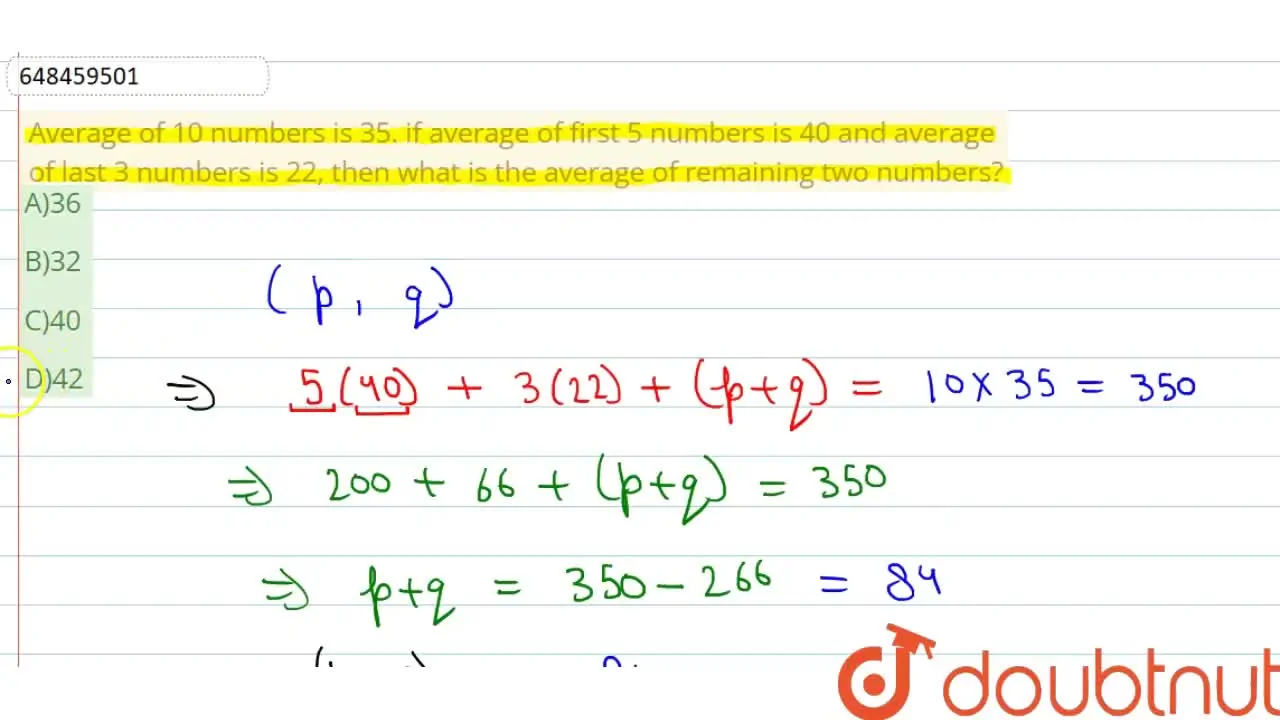 648459501
Average of 10 numbers is 35. if average of first 5 numbers is 40 and average
of last 3 numbers is 22, then what is the average of remaining two numbers?
A)36
B)32
(p, q)
C)40
D)42
=> 5(40) + 3(22) + (p+q) = 10 x 35 = 350
=> 200 + 66 + (p+q) = 350
=> p+q = 350 - 266 = 84
doubtnut